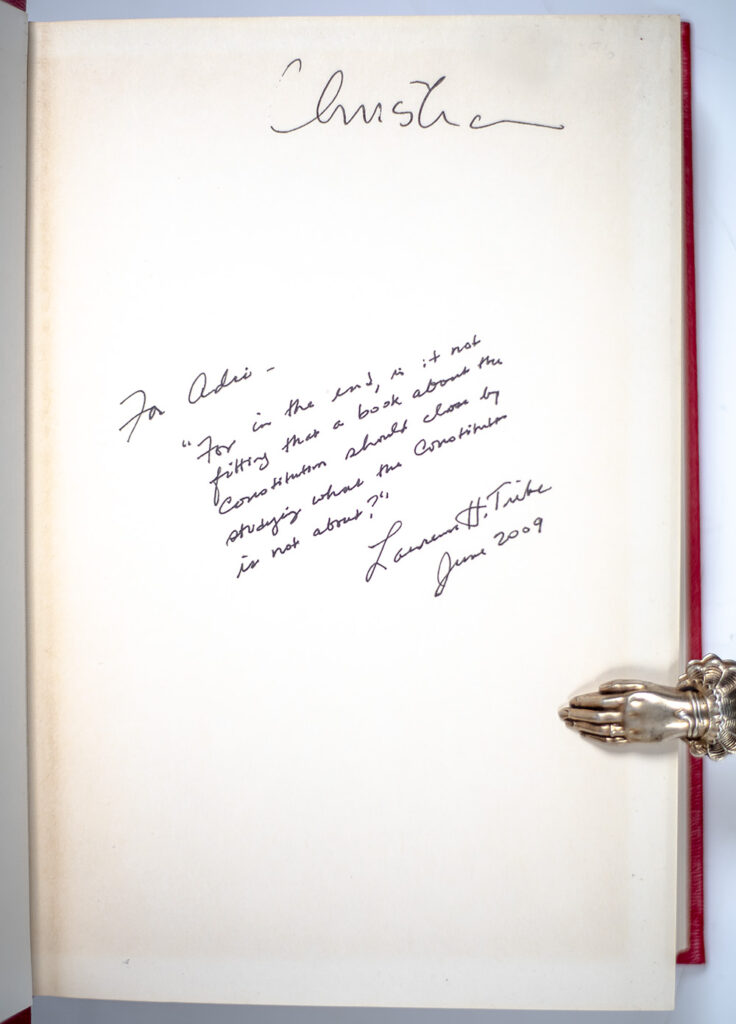 Christian
For Adio -
"For in the end, is it not
fitting that a book about the
Constitution should close by
studying what the Constitution
is not about?"
Laurence H. Tribe
June 2009